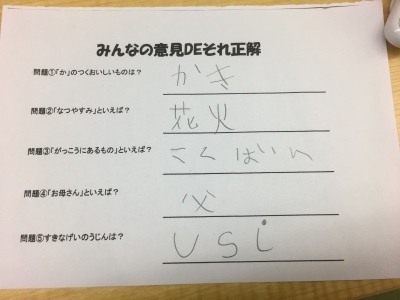 みんなの意見DEそれ正解
問題①「か」のつくおいしいものは？ かき
問題②「なつやすみ」といえば？ 花火
問題③「がっこうにあるもの」といえば？ こくばいん
問題④「お母さん」といえば？ 父
問題⑤すきなげいのうじんは？ USi